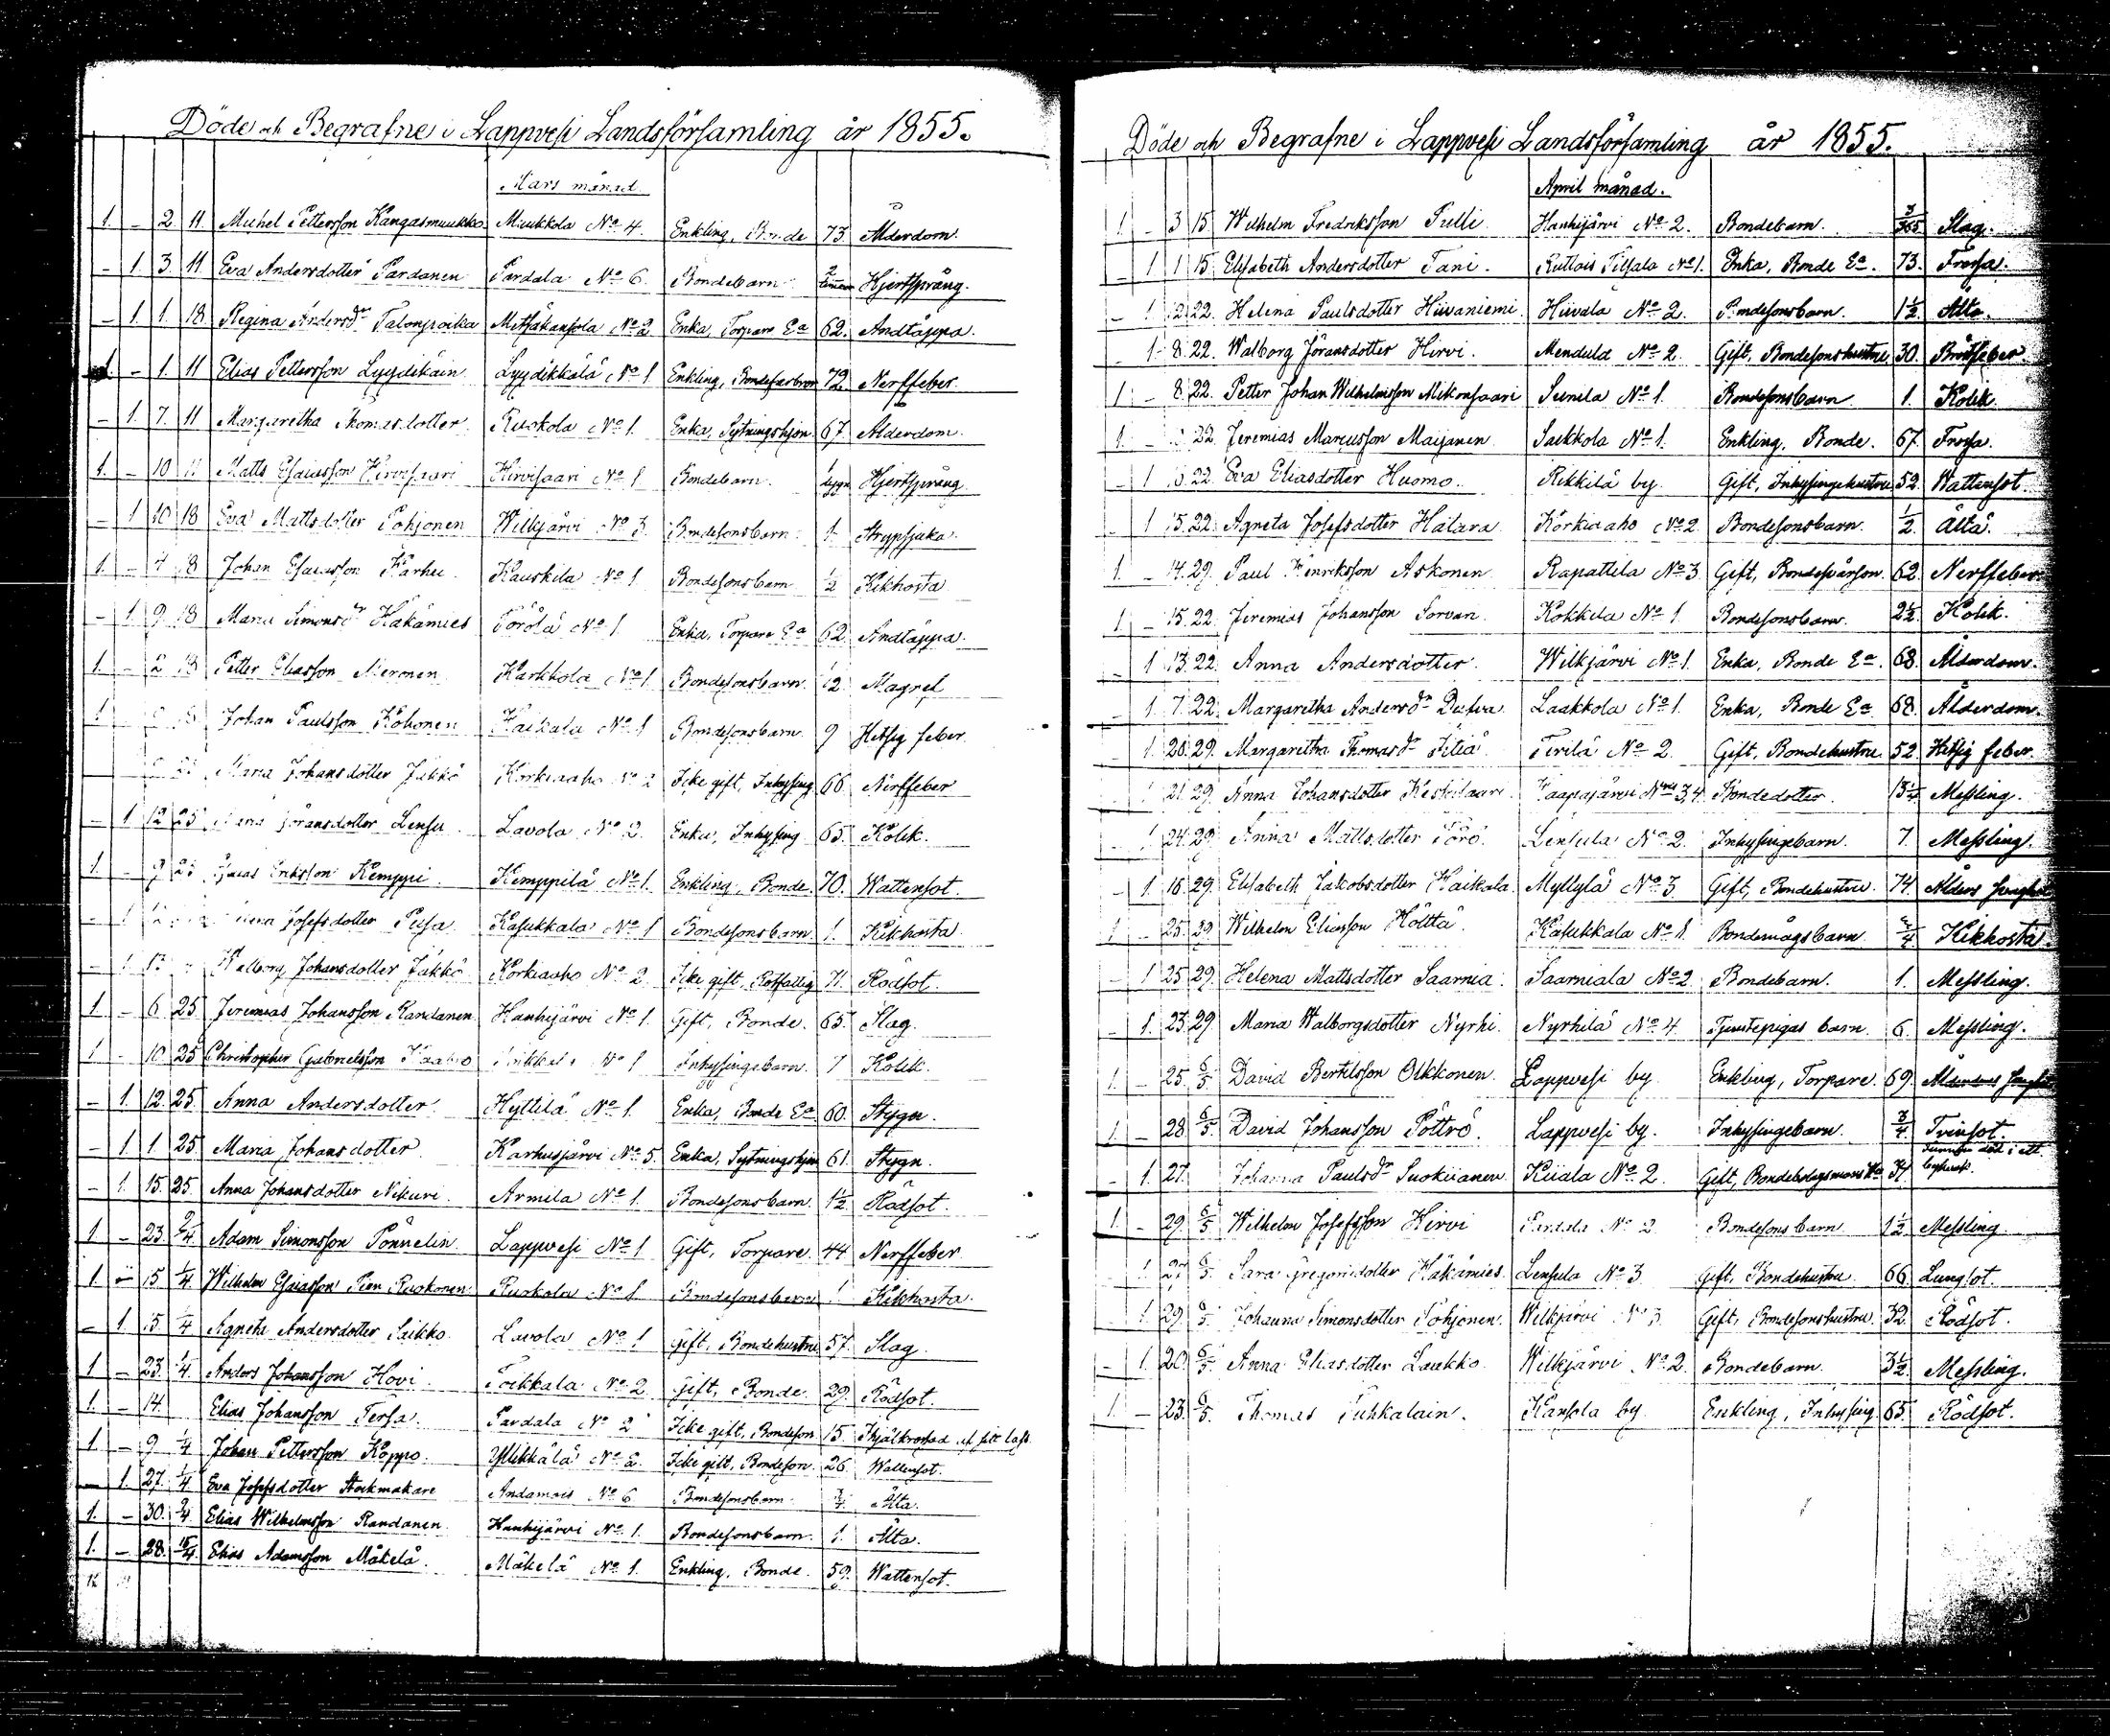 Döde och Begrafne i Lappvesi Landsförsamling år 1855.
Mars månad.
1. - 2 11 Michel Pettersson Kangasmuukko Muukkola No 4. Enkling, Bonde 73 Ålderdom.
- 1. 3. 11 Eva Andersdotter Pardanen Pardala No 6. Bondebarn 2 timmar Hjertsprång.
- 1. 1. 18. Regina Andersdr Talonpoika Metsäkansola No 2 Enka, Torpare Ea 62. Andtäppa.
1. - 1. 11 Elias Pettersson Lyydikäin Lyydikkälä No 1 Enkling, 72. Nerffeber.
- 1. 7. 11 Margaretha Thomasdotter Ruokola No 1. Enka, Sytningshjon 67. Ålderdom.
1. - 10 11 Matts Esaiasson Hirvisaari Hirvisaari No 1 Bondebarn. 1 dygn Hjertsprång
- 1 10 18 Eva Mattsdotter Pohjonen Wilkjärvi No 3. Bondesonsbarn. 1. Strypsjuka.
1. - 4 18 Johan Esaiasson Karhu Kauskila No 1 Bondesonsbarn 1/2 Kikhosta
- 1 9 18 Maria Simonsdr Häkämies Törölä No 1. Enka, Torpare Ea 62 Andtäppa.
1. - 2 18 Petter Eliasson Meronen Karkkola No 1 Bondesonsbarn 1/2 Magref
1 18 Johan Paulsson Kohonen Haikala No 1 Bondesonsbarn 9 Hetsig feber
Maria Johansdotter Jäkkö Korkiaaho No 2 Icke gift, Inhysing 66 Nerffeber
- 1 12 25 Maria Jöransdotter Lensu Lavola No 2. Enka, Inhysing 65. Kolik.
1. - 9 25 Eriksson Kemppi Kemppilä No 1. Enkling, Bonde 70. Wattensot.
- 1 Josefsdotter Pusa Kasukkala No 1 Bondesonsbarn 1. Kikhosta
- 1 Walborg Johansdotter Jäkkö Korkiaaho No 2 Icke gift, Rotfattig 71. Rödsot.
1 - 6. 25 Jeremias Johansson Randanen Hanhijärvi No 1. Gift, Bonde. 65. Slag.
1 - 10 25 Christopher Gabrielsson No 1 Inhysingebarn. 7 Kolik.
- 1. 12. 25. Anna Andersdotter. Hyttilä No 1. Enka, Bonde Ea 60. Stygn.
- 1 1 25 Maria Johansdotter Karhusjärvi No 5. Enka, Sytningshjon 61. Stygn.
- 1. 15. 25. Anna Johansdotter Nikuri. Armila No 1. Bondesonsbarn. 1 1/2 Rödsot.
1 - 23. 2/4 Adam Simonsson Pönnelin. Lappvesi No 1 Gift, Torpare. 44 Nerffeber
1 - 15 1/4 Wilhelm Esaiasson Pien Ruokonen Ruokola No 1 Bondesonsbarn 1 Kikhosta.
- 1. 15. 1/4 Agneta Andersdotter Saikko Lavola No 1 Gift, Bondehustru 57. Slag.
1 - 23. 1/4. Anders Johansson Hovi. Toikkala No 2 Gift, Bonde. 29. Rödsot.
1. - 14. Elias Johansson Tersa. Pardala No 2 Icke gift, Bondeson 15. Ihjälkrossad af sitt lass.
1 - 9 1/4 Johan Pettersson Koppo. Yllikkälä No 2. Icke gift, Bondeson. 26. Wattensot.
- 1. 27. 1/4 Eva Josefsdotter Stockmakare No 6 Bondesonsbarn 3/4. Älta.
1. - 30. 2/4 Elias Wilhelmsson Randanen Hanhijärvi No 1. Bondesonsbarn 1. Älta.
1. - 28. 15/4 Elias Adamsson Mäkelä. Mäkelä No 1. Enkling, Bonde. 59. Wattensot.
Döde och Begrafne i Lappvesi Landsförsamling år 1855.
April månad.
1 - 3 15. Wilhelm Fredriksson Tulli Hanhijärvi No 2. Bondebarn. 3/365 Slag.
- 1 1 15. Elisabeth Andersdotter Tani. No 1. Enka, Bonde Ea. 73. Frossa.
- 1 2 22. Helena Paulsdotter Hiivaniemi Hiivala No 2. Bondesonsbarn. 1 1/2. Älta.
- 1. 8. 22. Walborg Jöransdotter Hirvi. Mendula No 2. Gift, Bondesonshustru 30. Bröstfeber.
1. - 8. 22. Petter Johan Wilhelmsson Mikonsaari Sunila No 1. Bondesonsbarn 1. Kolik.
1. - 22. Jeremias Marcusson Maijanen Saikkola No 1. Enkling, Bonde. 67. Frossa.
- 1 22. Eva Eliasdotter Huomo. Rikkilä by. Gift, Inhysingehustru 52. Wattensot.
- 1 15. 22. Agneta Josefsdotter Hatara Korkiaaho No 2 Bondesonsbarn. 1/2. Älta.
1. - 14. 29. Paul Henriksson Askonen Rapattila No 3. Gift, 62. Nerffeber
1. - 15. 22. Jeremias Johansson Sorvari Kokkila No 1. Bondesonsbarn. 2 1/2. Kolik.
- 1 13. 22. Anna Andersdotter. Wilkjärvi No 1. Enka, Bonde Ea. 68. Ålderdom.
- 1. 7. 22. Margaretha Andersdr Dufva. Laakkola No 1. Enka, Bonde Ea 68. Ålderdom.
- 1. 20. 29. Margaretha Thomasdr Tiliä Tirilä No 2. Gift, Bondehustru 52. Hetsig feber.
- 1 21. 29. Anna Johansdotter Keskisaari Haapajärvi 3, 4. Bondedotter. 13 1/4. Messling.
- 1 24. 29. Anna Mattsdotter Törö. Lensula No 2. Inhysingebarn. 7. Messling.
- 1. 16. 29. Elisabeth Jakobsdotter Haikala. Myllylä No 3. Gift, Bondehustru. 74 Ålders
1 - 25. 29. Wilhelm Eliasson Höttä. Kasukkala No 1. Bondemågsbarn. 2/4 Kikhosta.
- 1 25. 29. Helena Mattsdotter Saarnia. Saarniala No 2. Bondebarn. 1. Messling.
- 1. 23. 29. Maria Walborgsdotter Nyrhi. Nyrhilä No 4. Tjenstepigas barn. 6. Messling.
1. - 25. 6/5 David Bertilsson Olkkonen. Lappvesi by. Enkling, Torpare. 69.
1. - 28. 6/5. David Johansson Pöttrö. Lappvesi by. Inhysingebarn. 3/4. Tvinsot.
- 1. 27. Johanna Paulsdr Suokiianen Kiiala No 2. Gift, 37. död i ett
1. - 29. 6/5 Wilhelm Josefsson Hirvi Pardala No 2 Bondesonsbarn 1 1/2 Messling
1. 27 6/5. Sara Gregoridotter Häkämies. Lensula No 3. Gift, Bondehustru. 66. Lungsot.
1. 29. 6/5. Johanna Simonsdotter Pohjonen. Wilkjärvi No 3. Gift, Bondesonshustru. 32. Rödsot.
- 1. 20. 6/5. Anna Eliasdotter Laukko. Wilkjärvi No 2. Bondebarn. 3 1/2. Messling.
1. - 23. 6/5. Thomas Tuhkalain. Kansola by. Enkling, Inhysing 65. Rödsot.